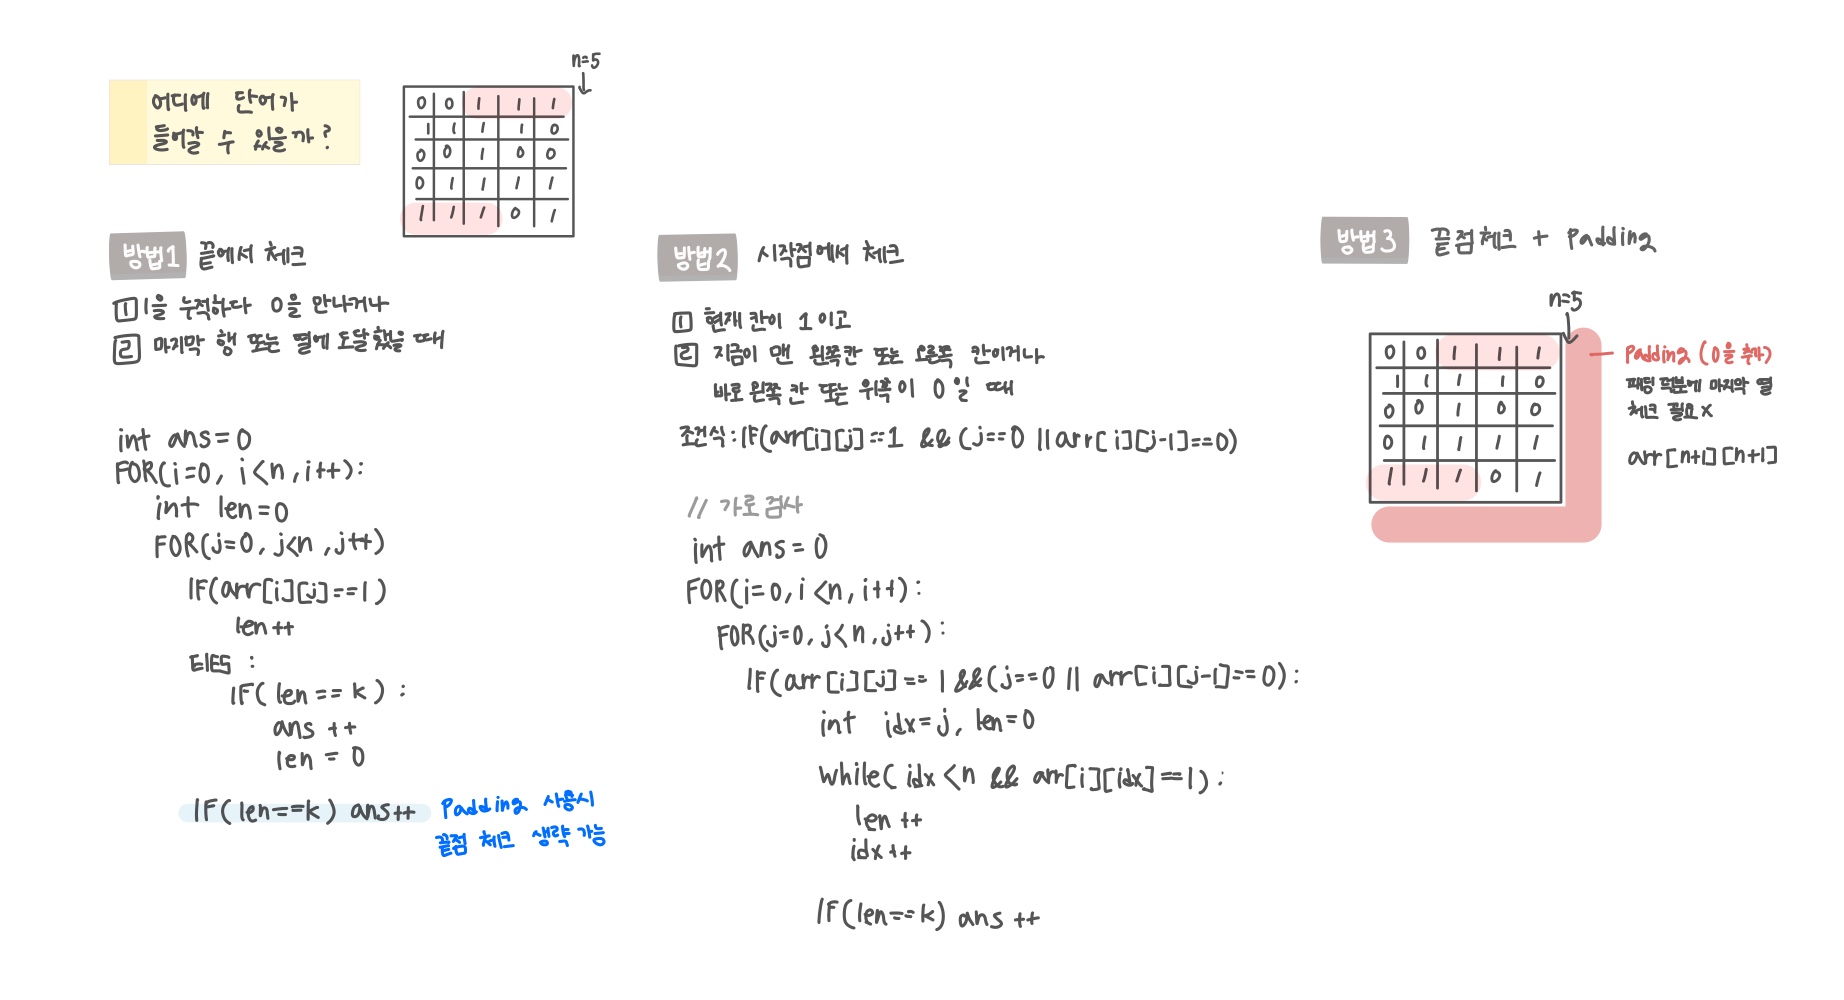 어디에 단어가
들어갈 수 있을까?
n=5
0 0 1 1 1
1 1 1 1 0
0 0 1 0 0
0 1 1 1 1
1 1 1 0 1
방법1 끝에서 체크
1 1을 누적하다 0을 만나거나
2 마지막 행 또는 열에 도달했을 때
int ans=0
FOR(i=0, i<n, i++):
int len=0
FOR(j=0, j<n, j++)
IF(arr[i][j]==1)
len++
ElES :
IF(len==k):
ans ++
len = 0
IF(len==k) ans++
Padding 사용시
끝점 체크 생략 가능
방법2 시작점에서 체크
1 현재 칸이 1이고
2 지금이 맨 왼쪽칸 또는 오른쪽 칸이거나
바로 왼쪽 칸 또는 위쪽이 0일 때
조건식: IF(arr[i][j]==1 && (j==0 || arr[i][j-1]==0)
// 가로 검사
int ans=0
FOR(i=0, i<n, i++):
FOR(j=0, j<n, j++):
IF(arr[i][j]==1 && (j==0 || arr[i][j-1]==0):
int idx=j, len=0
while(idx<n && arr[i][idx]==1):
len++
idx++
IF(len==k) ans++
방법3 끝점체크 + Padding
n=5
0 0 1 1 1
1 1 1 1 0
0 0 1 0 0
0 1 1 1 1
1 1 1 0 1
Padding (0을 추가)
패딩 덕분에 마지막 열
체크 필요X
arr[n+1][n+1]